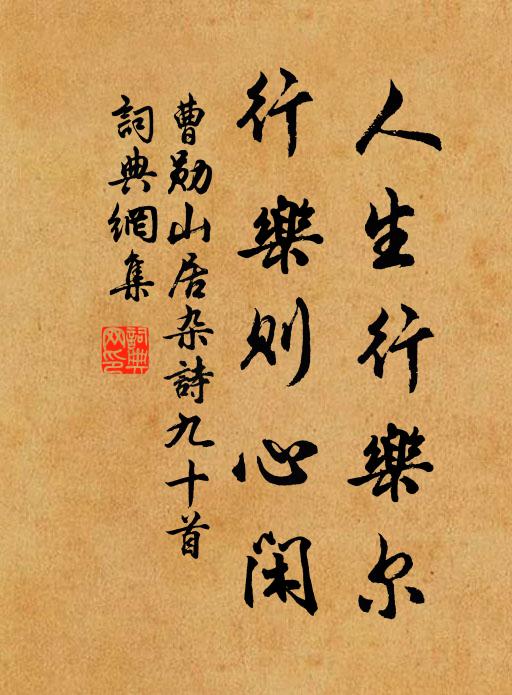 人生行樂尔
行樂则心闲
曹勋山居杂詩九十首
詞典網集
詞典
网印